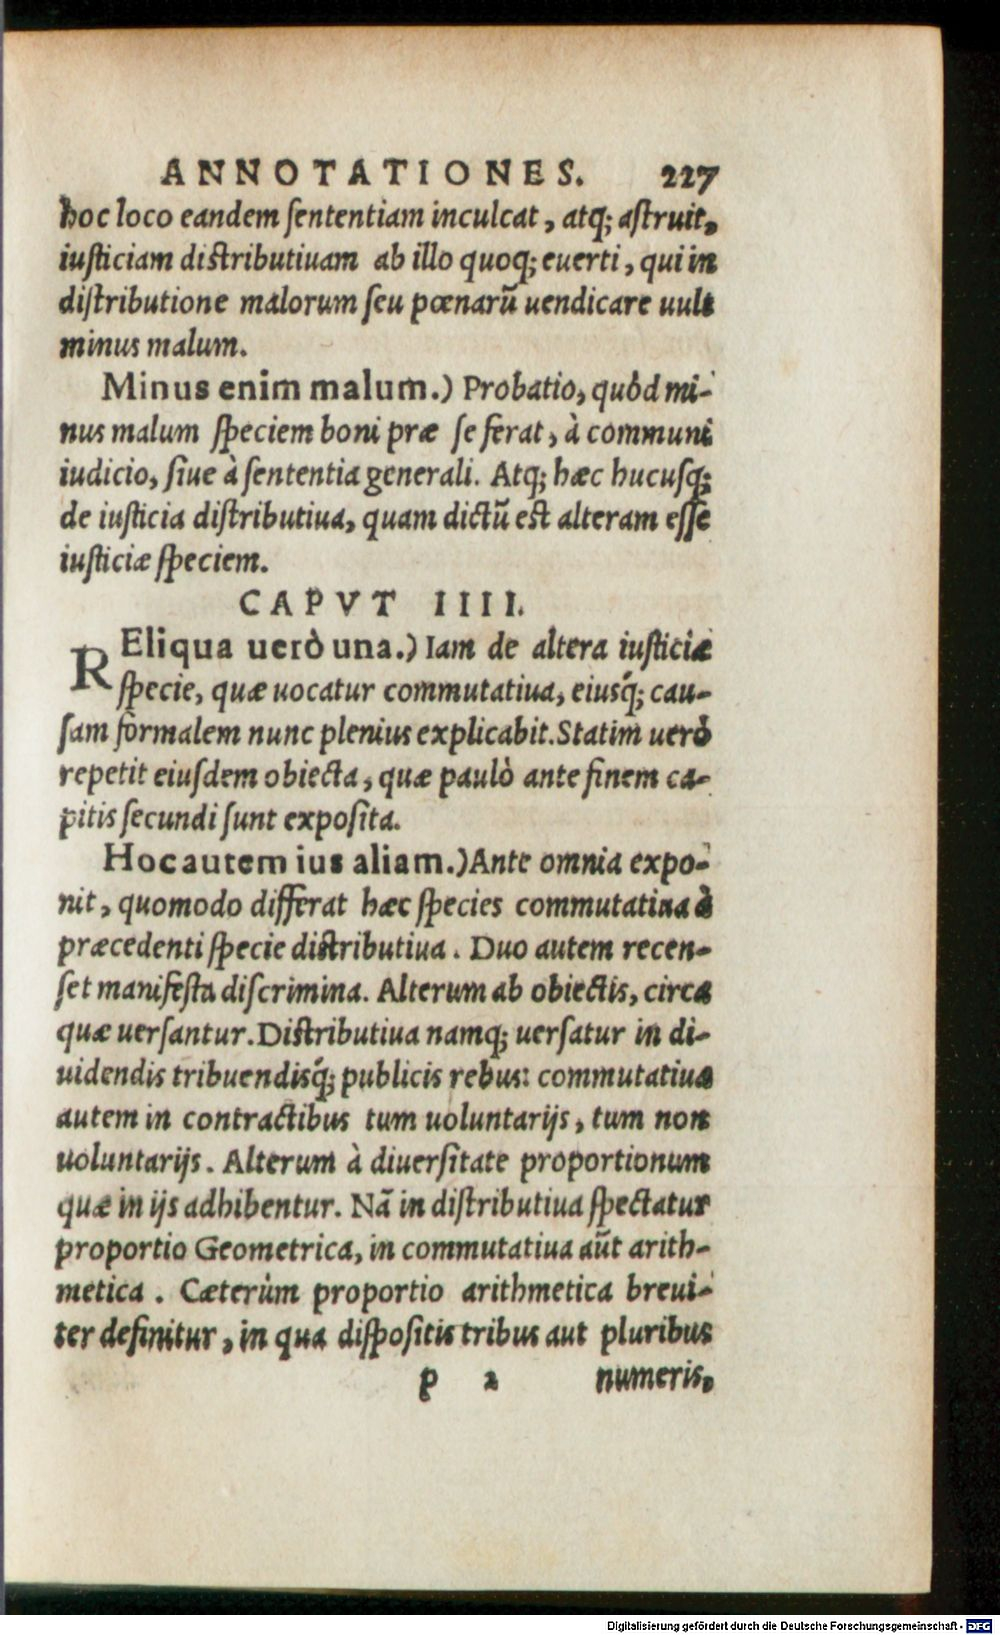 ANNOTATIONES. 227
hoc loco eandem ſententiam inculcat, atq; aſtruit,
iuſticiam diſtributiuam ab illo quoq; euerti, qui in
diſtributione malorum ſeu pœnarũ uendicare uult
minus malum.
Minus enim malum.) Probatio, quòd mi-
nus malum ſpeciem boni præ ſe ferat, à communi
iudicio, ſiue à ſententia generali. Atq; hæc hucuſq;
de iuſticia diſtributiua, quam dictũ eſt alteram eſſe
iuſticiæ ſpeciem.
CAPVT IIII.
REliqua uerò una.) Iam de altera iuſticiæ
ſpecie, quæ uocatur commutatiua, eiusq́; cau-
ſam formalem nunc plenius explicabit. Statim uerò
repetit eiuſdem obiecta, quæ paulò ante finem ca-
pitis ſecundi ſunt expoſita.
Hoc autem ius aliam.) Ante omnia expo-
nit, quomodo differat hæc ſpecies commutatiua à
præcedenti ſpecie diſtributiua. Duo autem recen-
ſet manifeſta diſcrimina. Alterum ab obiectis, circa
quæ uerſantur. Diſtributiua namq; uerſatur in di-
uidendis tribuendisq́; publicis rebus: commutatiua
autem in contractibus tum uoluntarijs, tum non
uoluntarijs. Alterum à diuerſitate proportionum
quæ in ijs adhibentur. Nã in diſtributiua ſpectatur
proportio Geometrica, in commutatiua aũt arith-
metica. Cæterùm proportio arithmetica breui-
ter definitur, in qua diſpoſitis tribus aut pluribus
p 2 numeris,
Digitalisierung gefördert durch die Deutsche Forschungsgemeinschaft - DFG